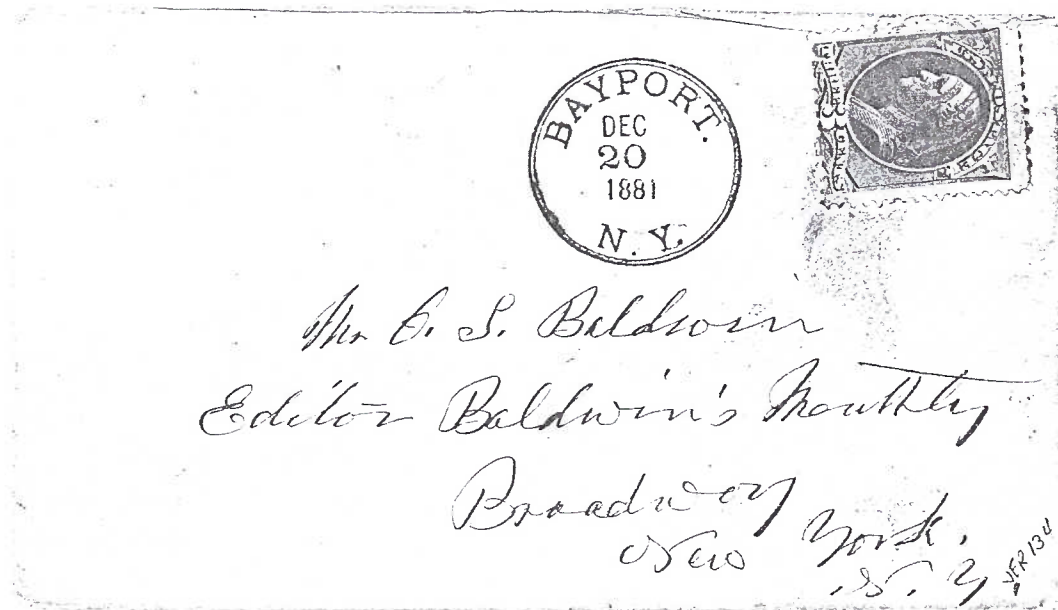 BAYPORT.
DEC
20
1881
N. Y.
Mr O. S. Baldwin
Editor Baldwin's Monthly
Broadway
New York.
N. Y